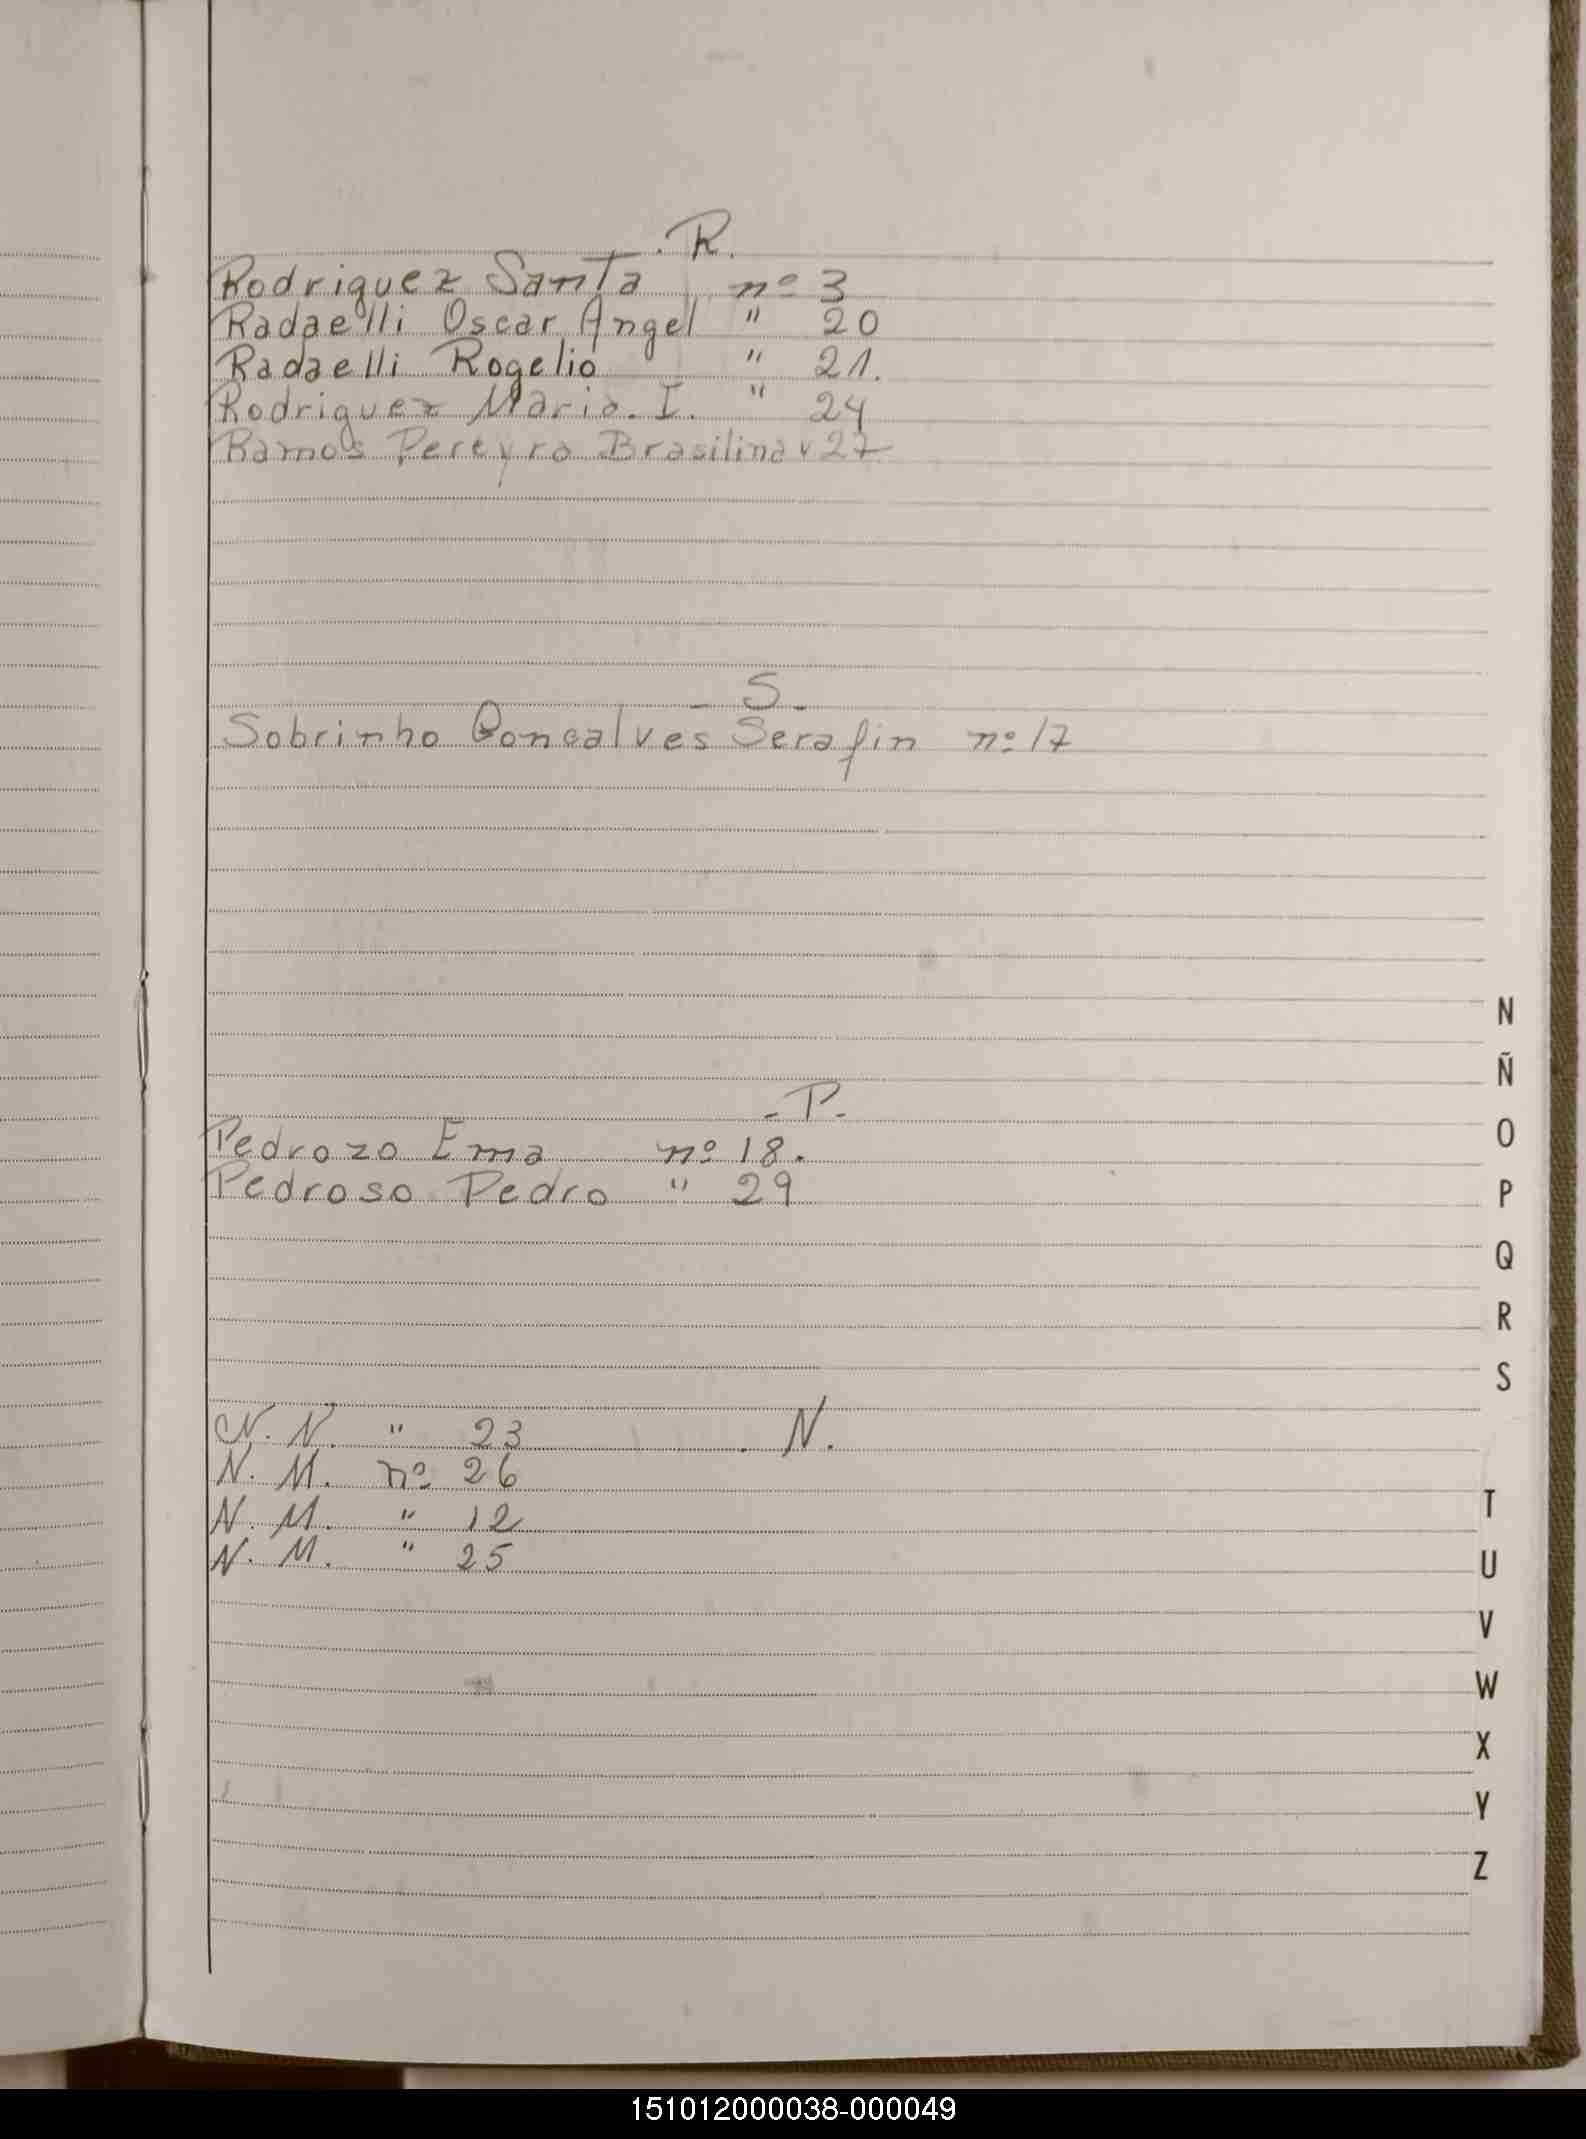 .R.
Rodriguez Santa nº 3
Radaelli Oscar Angel " 20
Radaelli Rogelio " 21.
Rodriguez Maria. I. " 24
Ramos Pereyra Brasilina " 27
- S -
Sobrinho Goncalves Serafin nº 17
- P -
Pedrozo Ema nº 18.
Pedroso Pedro " 29
. N.
N. N. " 23
N. M. nº 26
N. M. " 12
N. M. " 25
N
Ñ
O
P
Q
R
S
T
U
V
W
X
Y
Z
151012000038-000049